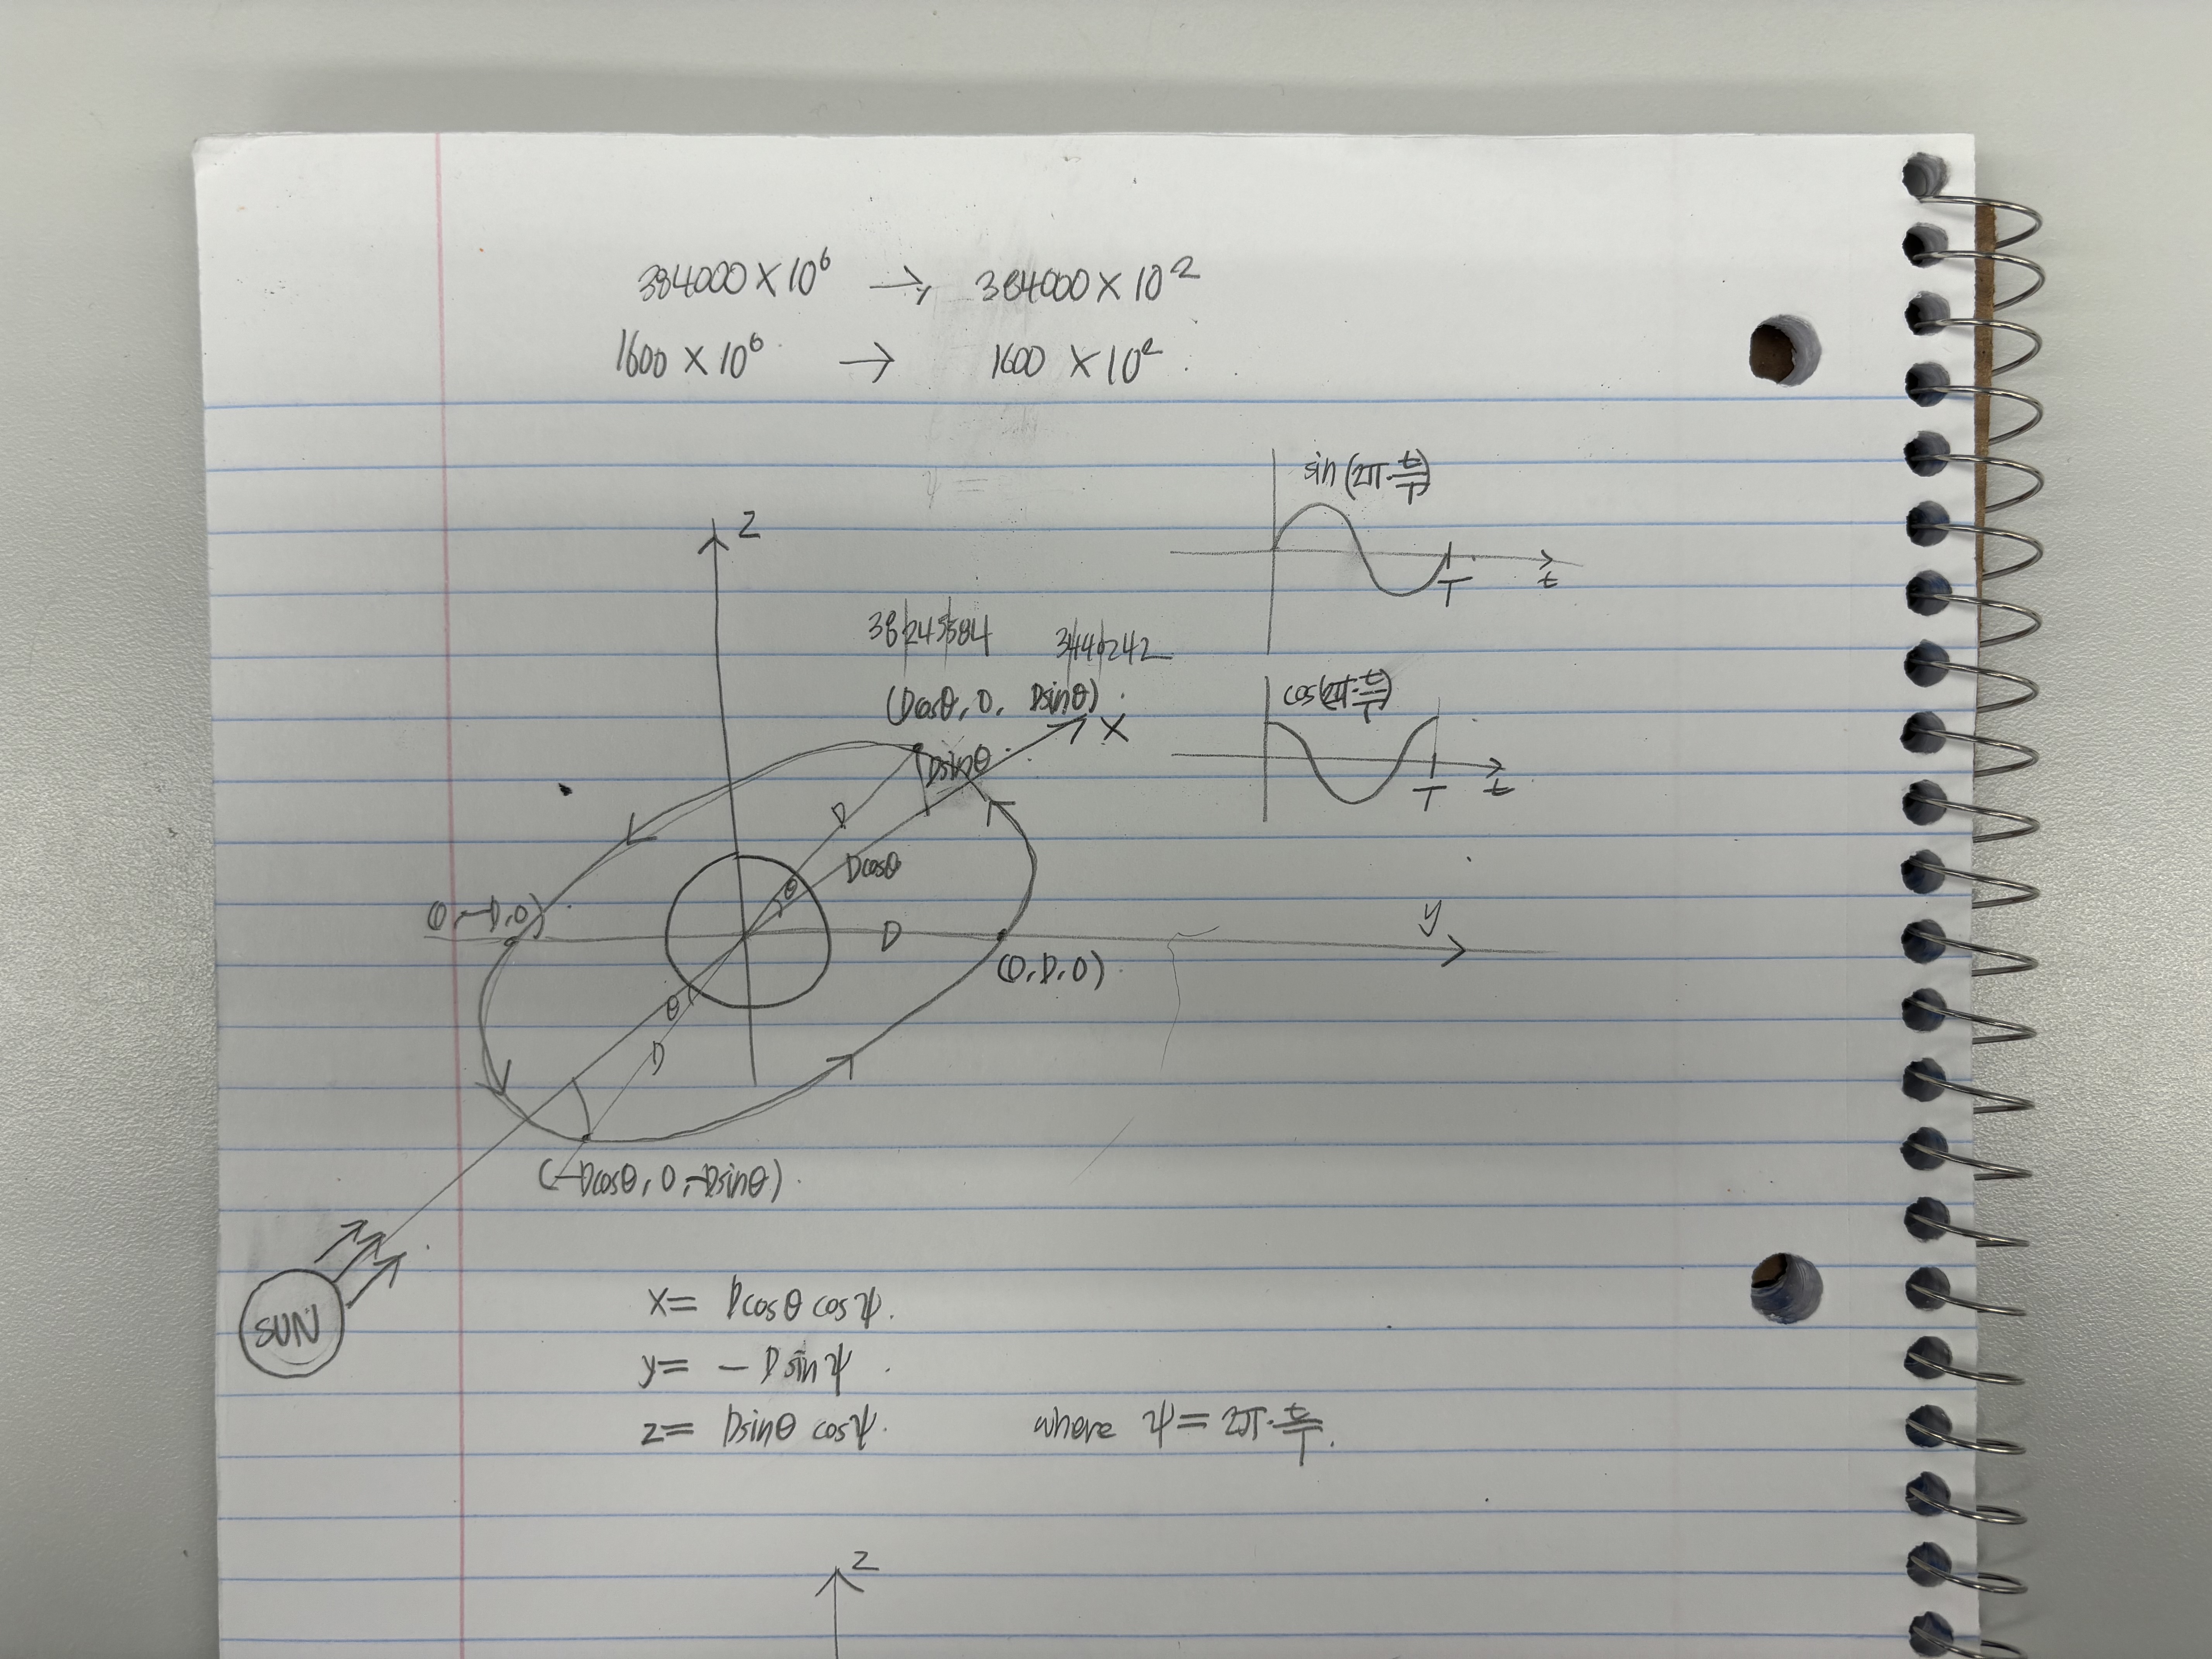 384000 × 10⁶ → 384000 × 10²
1600 × 10⁶ → 1600 × 10²
sin(2π·t/T)
t
T
z
38245584 3440242
(Dcosθ, 0, Dsinθ)
x
cos(2π·t/T)
t
T
Dsinθ
D
Dcosθ
θ
(0, -D, 0)
D
y
(0, D, 0)
θ
D
(-Dcosθ, 0, -Dsinθ)
SUN
x = Dcosθ cosψ.
y = - Dsinψ.
z = Dsinθ cosψ. where ψ = 2π·t/T.
z